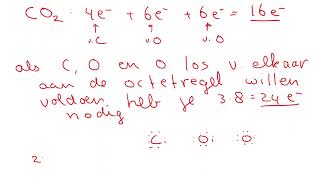 CO₂ : 4e⁻ + 6e⁻ + 6e⁻ = 16e⁻
v.C v.O v.O
als C, O en O los v. elkaar
aan de octetregel willen
voldoen, heb je 3·8 = 24 e⁻
nodig
C O O
2